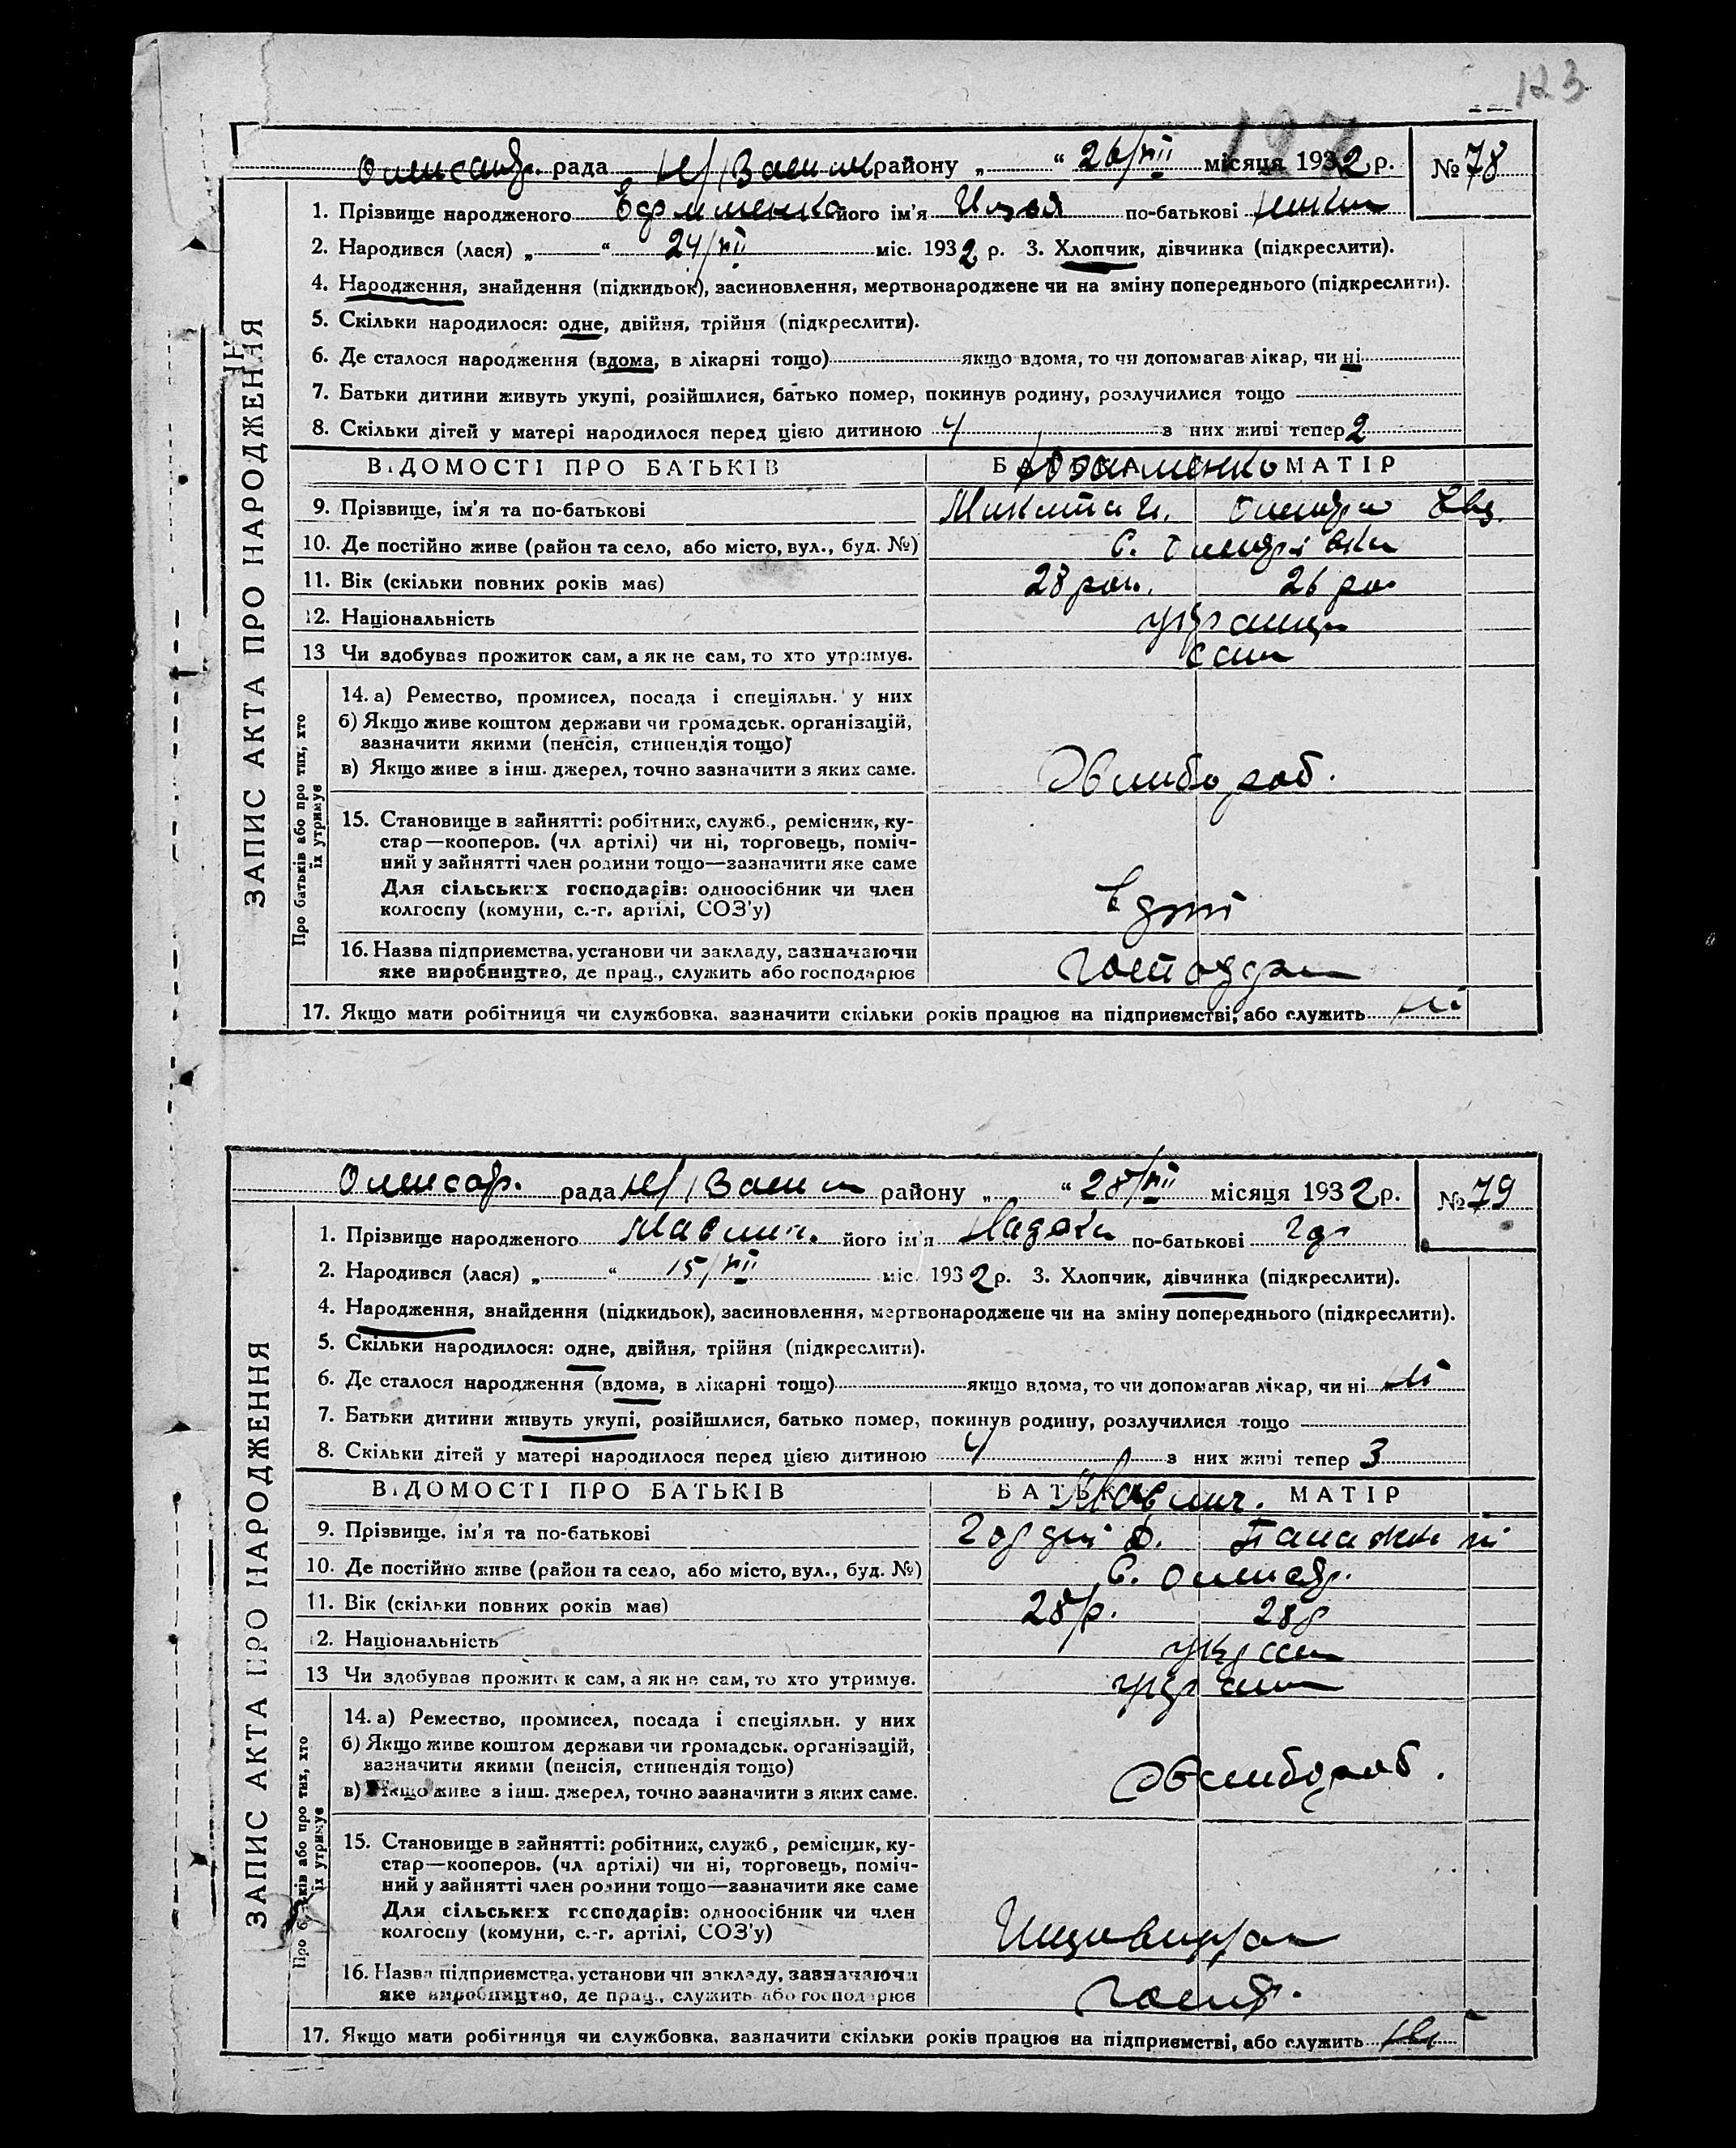 123
Олександр. рада Н/Васил району „ “ 26/VII місяця 1932 р. № 78
ЗАПИС АКТА ПРО НАРОДЖЕННЯ
1. Прізвище народженого його ім'я Илля по-батькові
2. Народився (лася) „ “ 24/VII міс. 1932 р. 3. Хлопчик, дівчинка (підкреслити).
4. Народження, знайдення (підкидьок), засиновлення, мертвонароджене чи на зміну попереднього (підкреслити).
5. Скільки народилося: одне, двійня, трійня (підкреслити).
6. Де сталося народження (вдома, в лікарні тощо) якщо вдома, то чи допомагав лікар, чи ні
7. Батьки дитини живуть укупі, розійшлися, батько помер, покинув родину, розлучилися тощо
8. Скільки дітей у матері народилося перед цією дитиною 4 з них живі тепер 2
ВІДОМОСТІ ПРО БАТЬКІВ БАТЬКА МАТІР
9. Прізвище, ім'я та по-батькові Микита
10. Де постійно живе (район та село, або місто, вул., буд. №) С.
11. Вік (скільки повних років має) 28 рок. 26 ро
12. Національність українци
13 Чи здобуває прожиток сам, а як не сам, то хто утримує. сам
Про батьків або про тих, хто їх утримує
14. а) Ремество, промисел, посада і спеціяльн. у них
б) Якщо живе коштом держави чи громадськ. організацій,
зазначити якими (пенсія, стипендія тощо)
в) Якщо живе з інш. джерел, точно зазначити з яких саме. Хлибороб.
15. Становище в зайнятті: робітник, служб., ремісник, ку-
стар—кооперов. (чл. артілі) чи ні, торговець, поміч-
ний у зайнятті член родини тощо—зазначити яке саме
Для сільських господарів: одноосібник чи член
колгоспу (комуни, с.-г. артілі, СОЗ'у)
16. Назва підприємства, установи чи закладу, зазначаючи
яке виробництво, де прац., служить або господарює
17. Якщо мати робітниця чи службовка, зазначити скільки років працює на підприємстві, або служить ні
Олександр. рада Н/Васил району „ “ 28/VII місяця 1932 р. № 79
ЗАПИС АКТА ПРО НАРОДЖЕННЯ
1. Прізвище народженого його ім'я Надежи по-батькові
2. Народився (лася) „ “ 15/VII міс. 1932 р. 3. Хлопчик, дівчинка (підкреслити).
4. Народження, знайдення (підкидьок), засиновлення, мертвонароджене чи на зміну попереднього (підкреслити).
5. Скільки народилося: одне, двійня, трійня (підкреслити).
6. Де сталося народження (вдома, в лікарні тощо) якщо вдома, то чи допомагав лікар, чи ні ні
7. Батьки дитини живуть укупі, розійшлися, батько помер, покинув родину, розлучилися тощо
8. Скільки дітей у матері народилося перед цією дитиною 4 з них живі тепер 3
ВІДОМОСТІ ПРО БАТЬКІВ БАТЬКА МАТІР
9. Прізвище, ім'я та по-батькові Гордій
10. Де постійно живе (район та село, або місто, вул., буд. №) С. Олександр.
11. Вік (скільки повних років має) 28 р. 28 р
12. Національність україн
13 Чи здобуває прожиток сам, а як не сам, то хто утримує.
Про батьків або про тих, хто їх утримує
14. а) Ремество, промисел, посада і спеціяльн. у них
б) Якщо живе коштом держави чи громадськ. організацій,
зазначити якими (пенсія, стипендія тощо)
в) Якщо живе з інш. джерел, точно зазначити з яких саме. Хлибороб.
15. Становище в зайнятті: робітник, служб., ремісник, ку-
стар—кооперов. (чл артілі) чи ні, торговець, поміч-
ний у зайнятті член родини тощо—зазначити яке саме
Для сільських господарів: одноосібник чи член
колгоспу (комуни, с.-г. артілі, СОЗ'у)
16. Назва підприємства, установи чи закладу, зазначаючи
яке виробництво, де прац., служить або господарює
17. Якщо мати робітниця чи службовка, зазначити скільки років працює на підприємстві, або служить